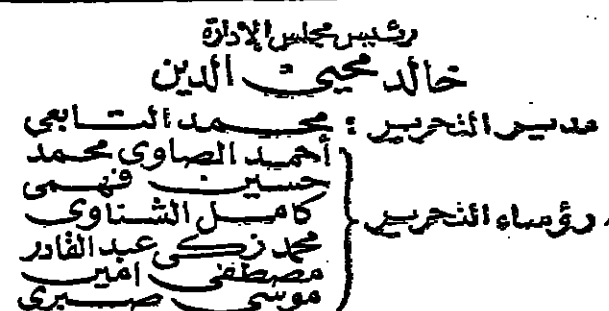 رئيس مجلس الإدارة
خالد محيى الدين
مدير التحرير : محمد التابعى
أحمد الصاوى محمد
حسين فهمى
رؤساء التحرير { كامل الشناوى
محمد زكى عبد القادر
مصطفى امين
موسى صبرى